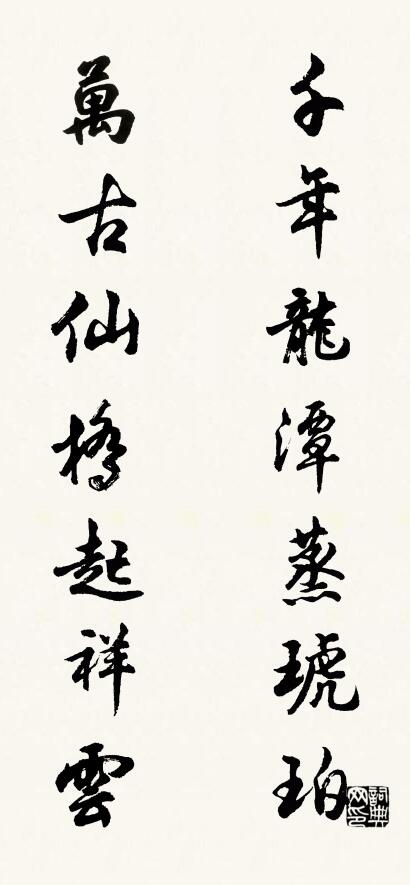 千年龍潭蒸琥珀
萬古仙橋起祥雲
詞典網印